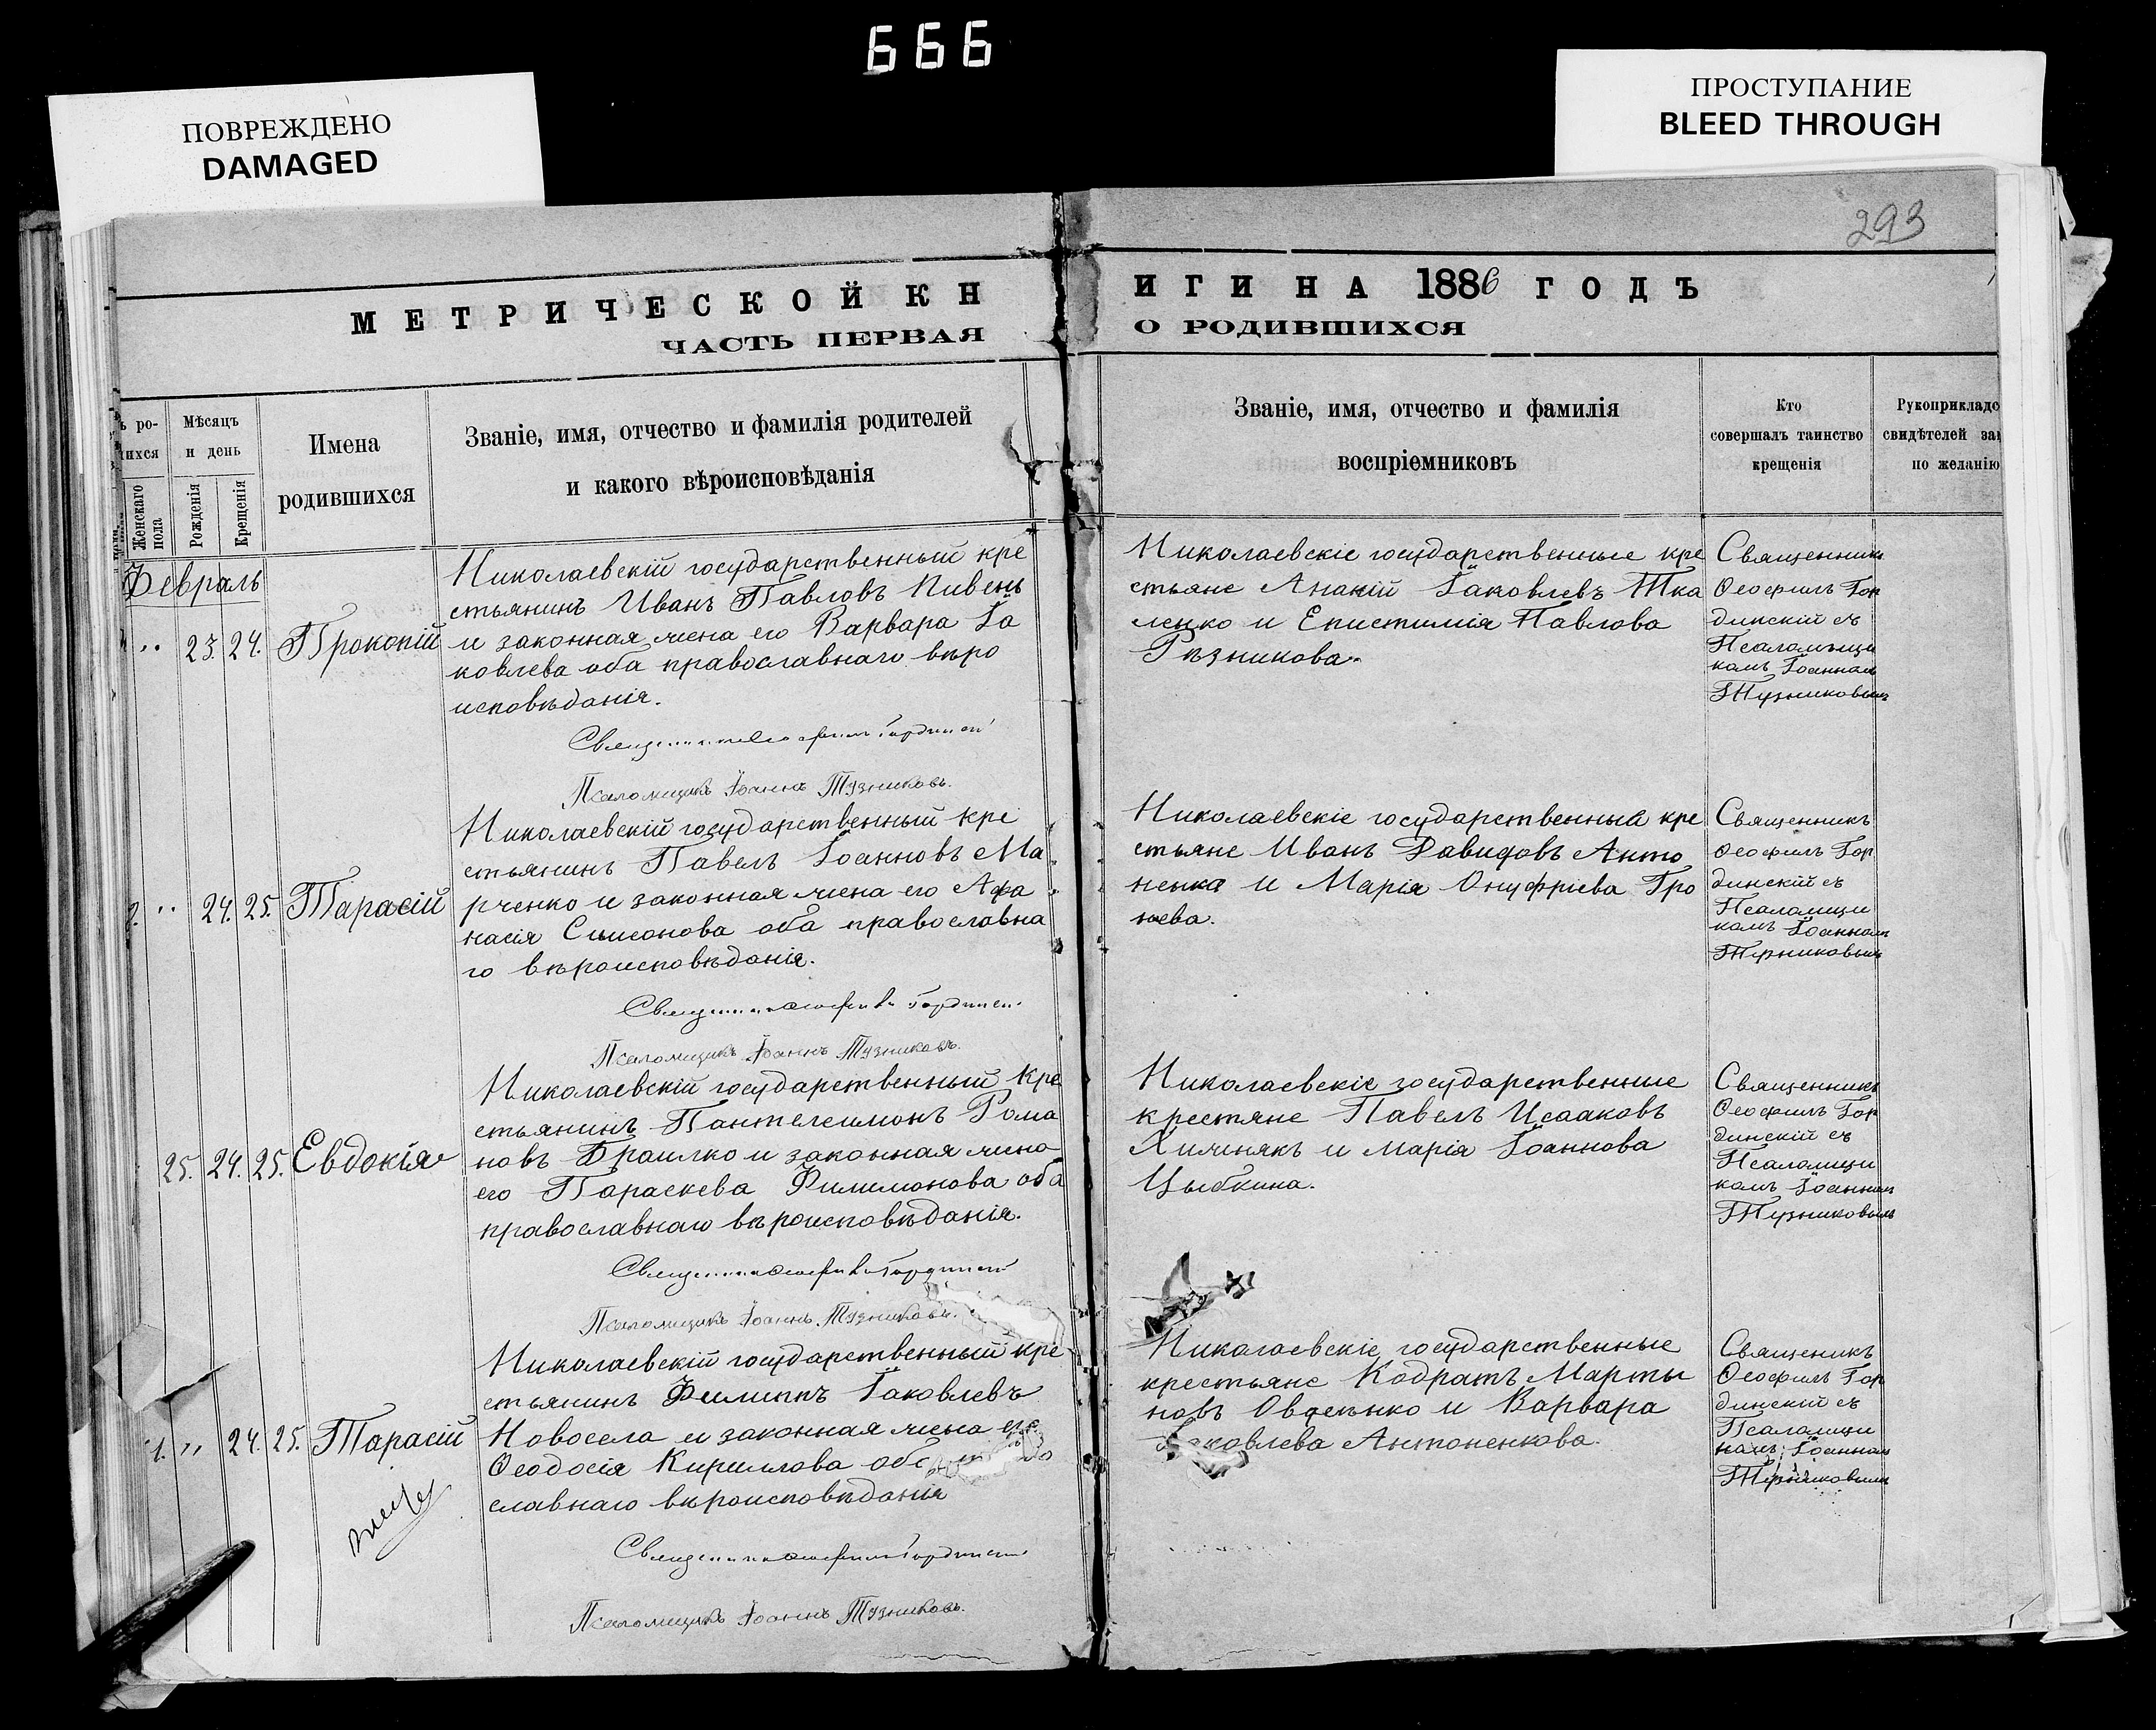 666
ПОВРЕЖДЕНО
DAMAGED
ПРОСТУПАНИЕ
BLEED THROUGH
293
МЕТРИЧЕСКОЙ КН
ИГИ НА 1886 ГОДЪ
ЧАСТЬ ПЕРВАЯ
О РОДИВШИХСЯ
ъ ро-
ихся
Женскаго пола
Мѣсяцъ
и день
Рожденія
Крещенія
Имена
родившихся
Званіе, имя, отчество и фамилія родителей
и какого вѣроисповѣданія
Званіе, имя, отчество и фамилія
воспріемниковъ
Кто
совершалъ таинство
крещенія
Рукоприкладс
свидѣтелей за
по желанію
Февраль
" 23. 24. Прокопій
Николаевскій государственный кре
стьянинъ Иванъ Павловъ Пивень
и законная жена его Варвара Іа
ковлева оба православнаго вѣро
исповѣданія.
Псаломщикъ Іоаннъ Тузниковъ.
Николаевскіе государственные кре
стьяне Ананій Іаковлевъ Тка
ленко и Епистимія Павлова
Рѣзникова.
Священникъ
Ѳеофилъ Гор
динскій съ
Псаломщи
комъ Іоанномъ
Тузниковымъ
" 24. 25. Тарасій
Николаевскій государственный кре
стьянинъ Павелъ Іоанновъ Ма
рченко и законная жена его Афа
насія Симонова оба православна
го вѣроисповѣданія.
Псаломщикъ Іоаннъ Тузниковъ.
Николаевскіе государственныя кре
стьяне Иванъ Давидовъ Анто
ненко и Марія Онуфріева Гро
нева.
Священникъ
Ѳеофилъ Гор
динскій съ
Псаломщи
комъ Іоанномъ
Тузниковымъ
25. 24. 25. Евдокія
Николаевскій государственный кре
стьянинъ Пантелеимонъ Рома
новъ Браилко и законная жена
его Параскева Филимонова оба
православнаго вѣроисповѣданія.
Псаломщикъ Іоаннъ Тузниковъ.
Николаевскіе государственные
крестяне Павелъ Исааковъ
Химинякъ и Марія Іоаннова
Цыбкина.
Священникъ
Ѳеофилъ Гор
динскій съ
Псаломщи
комъ Іоанномъ
Тузниковымъ
" 24. 25. Тарасій
Николаевскій государственный кре
стьянинъ Филиппъ Іаковлевъ
Новосела и законная жена его
Ѳеодосія Кириллова
славнаго вѣроисповѣданія
Псаломщикъ Іоаннъ Тузниковъ.
Николаевскіе государственные
крестьяне Кодратъ Марты
новъ Овсенько и Варвара
Іаковлева Антоненкова.
Священикъ
Ѳеофилъ Гор
динскій съ
Псаломщи
комъ Іоанномъ
Тузниковымъ